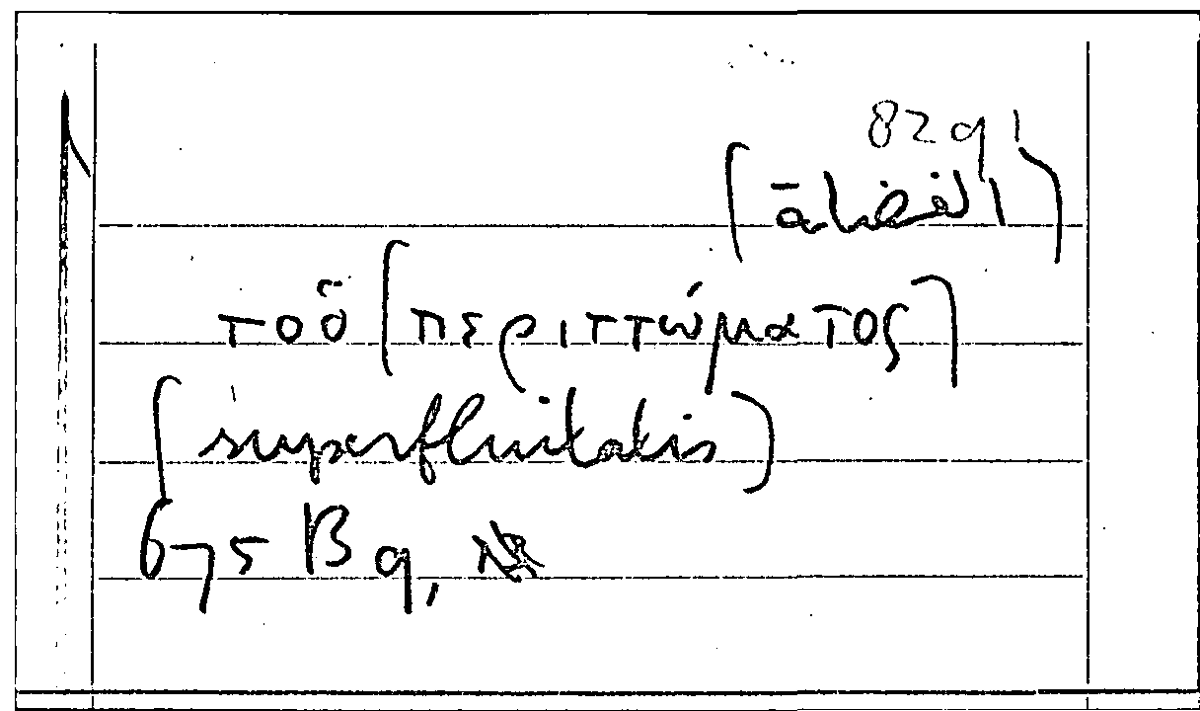 8291
τοῦ [περιττώματος]
(superfluitatis)
675 B 9,